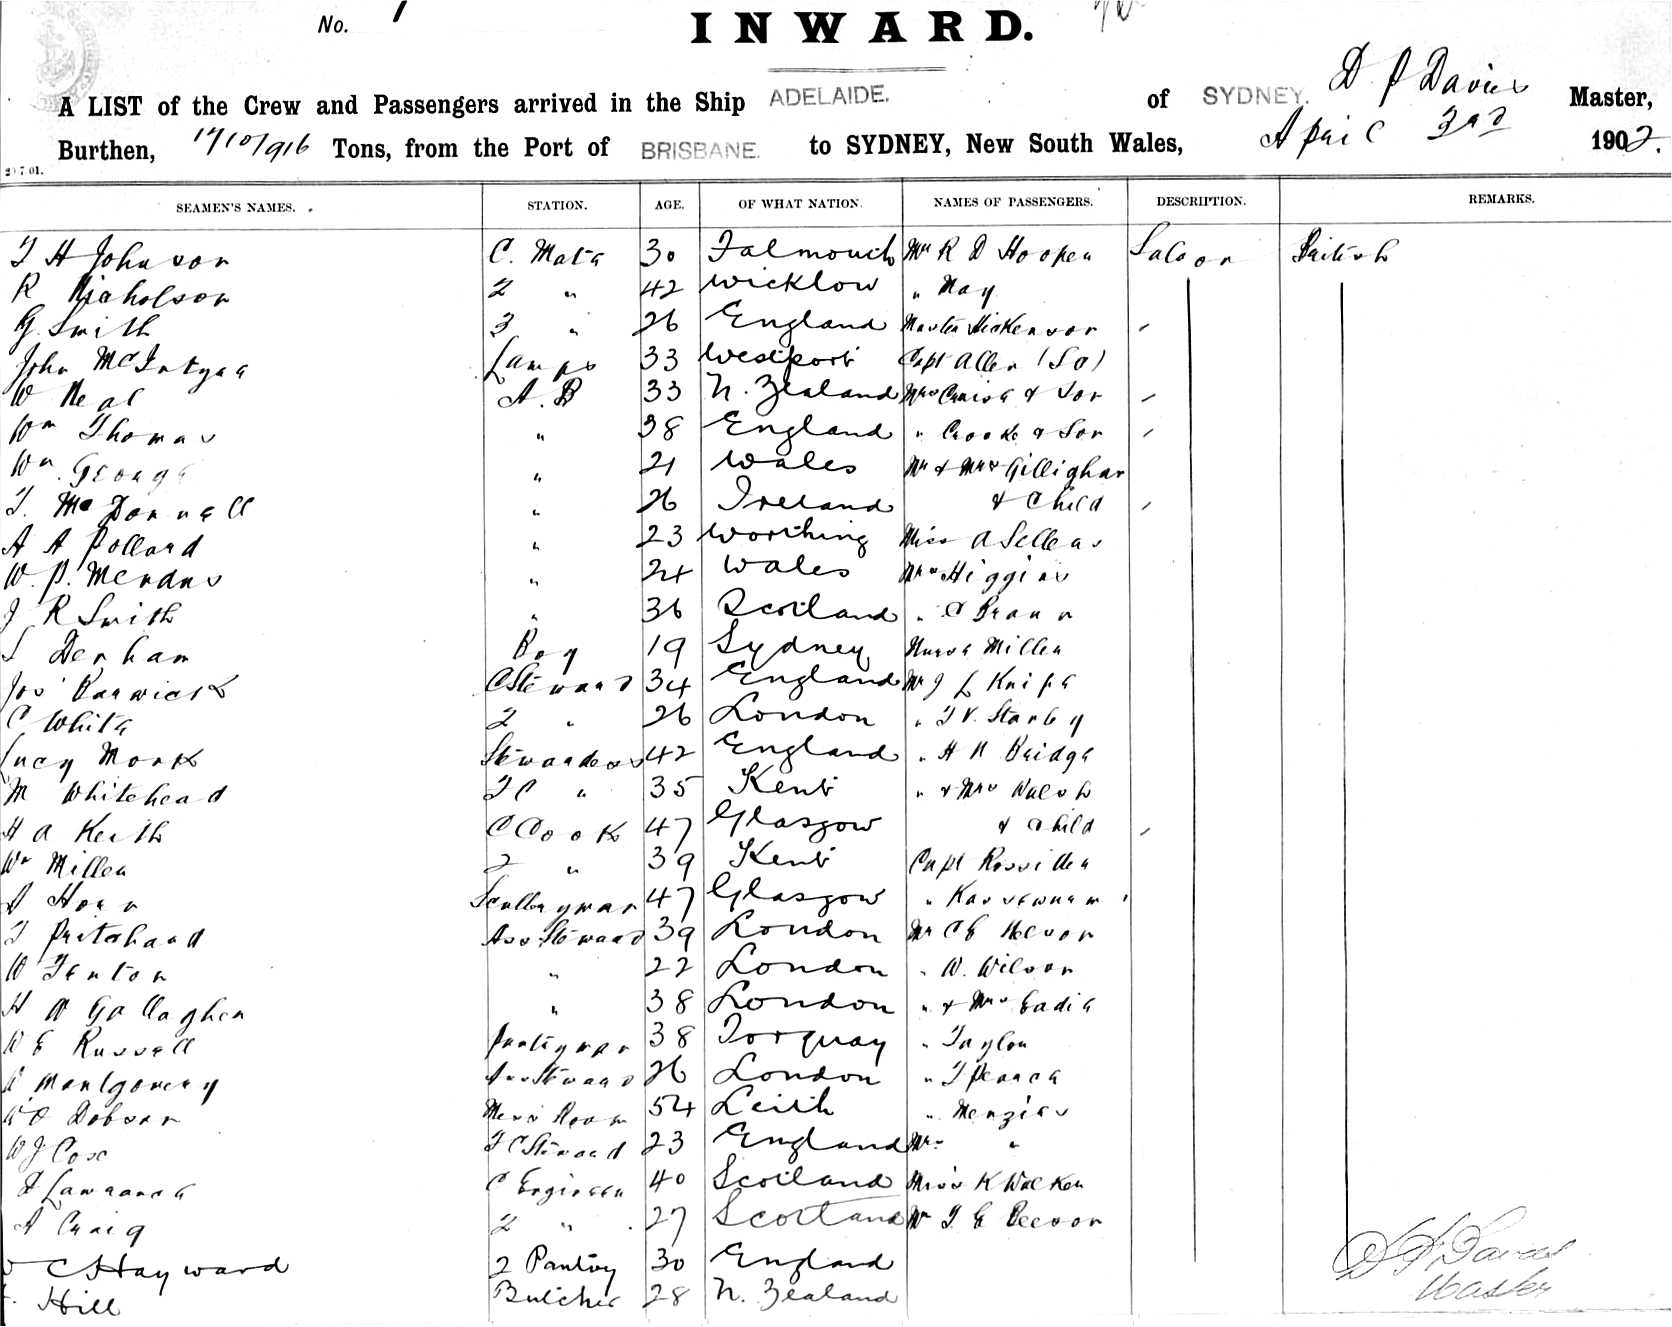 No. 1
INWARD.
A LIST of the Crew and Passengers arrived in the Ship ADELAIDE. of SYDNEY. D P Davies Master,
Burthen, 1710/916 Tons, from the Port of BRISBANE. to SYDNEY, New South Wales, April 3rd 1902.
SEAMEN'S NAMES. STATION. AGE. OF WHAT NATION. NAMES OF PASSENGERS. DESCRIPTION. REMARKS.
T H Johnson C. Mate 30 Falmouth Mr R D Hooper Saloon British
R Nicholson 2 " 42 Wicklow " May
G. Smith 3 " 26 England Master Hickenson
John McIntyre Lamps 33 Westport Capt Allen (So)
W Neal A.B 33 N. Zealand Mrs Craise & Son
Wm Thomas " 38 England " Crooke & Son
Wm George " 21 Wales Mr & Mrs Gillighan
T. McDonnell " 26 Ireland & Child
A A Pollard " 23 Worthing Miss A Sellers
W. P. Mendus " 24 Wales Mrs Higgins
J R Smith " 36 Scotland " Braun
S Denham Boy 19 Sydney Nurse Miller
Jos Barwick C Steward 34 England Mr J L Knipe
C White 2 " 26 London " T V. Stanley
Lucy Monk Stewardess 42 England " H N Bridge
M Whitehead FC " 35 Kent " & Mrs Walsh
H A Keith C Cook 47 Glasgow & Child
Wm Miller 2 " 39 Kent Capt Rossiter
A Horn Sculleryman 47 Glasgow "
T Pritchard Ass. Steward 39 London Mr C E
W Fenton " 22 London " W. Wilson
H W Gallagher " 38 London " & Mrs Eadie
W E Russell Pantryman 38 Torquay " Taylor
W Montgomery Ass Steward 26 London " T Pearce
W C Dobson Mess Room 54 Leith " Menzies
W J Cox F C Steward 23 England Mrs "
J Lawrance C Engineer 40 Scotland Miss K Walker
A Craig 2 " 27 Scotland Mr T E Beevor
C Hayward 2 Pantry 30 England
Hill Butcher 28 N. Zealand
D P Davies
Master